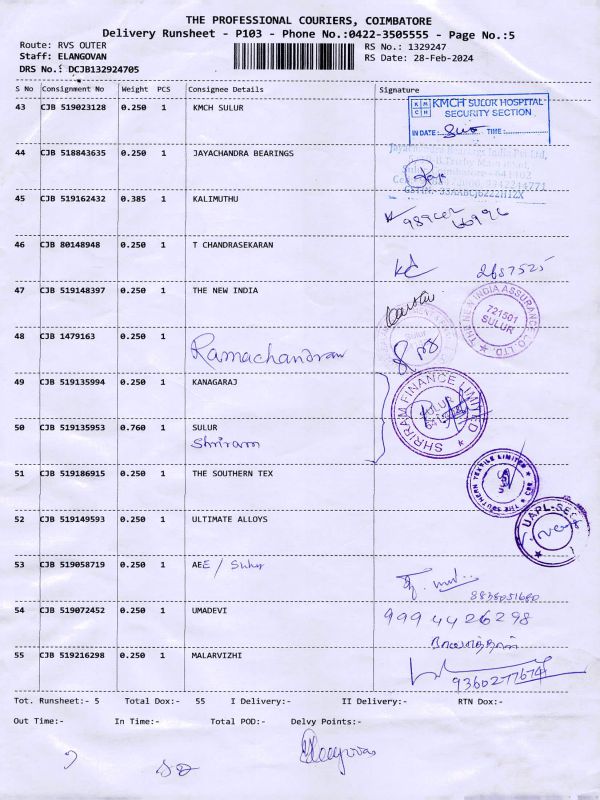 THE PROFESSIONAL COURIERS, COIMBATORE
Delivery Runsheet - P103 - Phone No.:0422-3505555 - Page No.:5
Route: RVS OUTER RS No.: 1329247
Staff: ELANGOVAN RS Date: 28-Feb-2024
DRS No.: DCJB132924705
S No Consignment No Weight PCS Consignee Details Signature
43 CJB 519023128 0.250 1 KMCH SULUR
KMCH SULUR HOSPITAL
SECURITY SECTION
IN DATE: TIME:
44 CJB 518843635 0.250 1 JAYACHANDRA BEARINGS
45 CJB 519162432 0.385 1 KALIMUTHU
46 CJB 80148948 0.250 1 T CHANDRASEKARAN
47 CJB 519148397 0.250 1 THE NEW INDIA
THE NEW INDIA ASSURANCE CO. LTD.
721501
SULUR
48 CJB 1479163 0.250 1 Ramachandran
49 CJB 519135994 0.250 1 KANAGARAJ
SHRIRAM FINANCE LIMITED
SULUR
50 CJB 519135953 0.760 1 SULUR
Shriram
51 CJB 519186915 0.250 1 THE SOUTHERN TEX
THE SOUTHERN TEXTILE LIMITED
52 CJB 519149593 0.250 1 ULTIMATE ALLOYS
53 CJB 519058719 0.250 1 AEE / Sulur
54 CJB 519072452 0.250 1 UMADEVI 999 4426298
55 CJB 519216298 0.250 1 MALARVIZHI
9360277674
Tot. Runsheet:- 5 Total Dox:- 55 I Delivery:- II Delivery:- RTN Dox:-
Out Time:- In Time:- Total POD:- Delvy Points:-
Elangovan